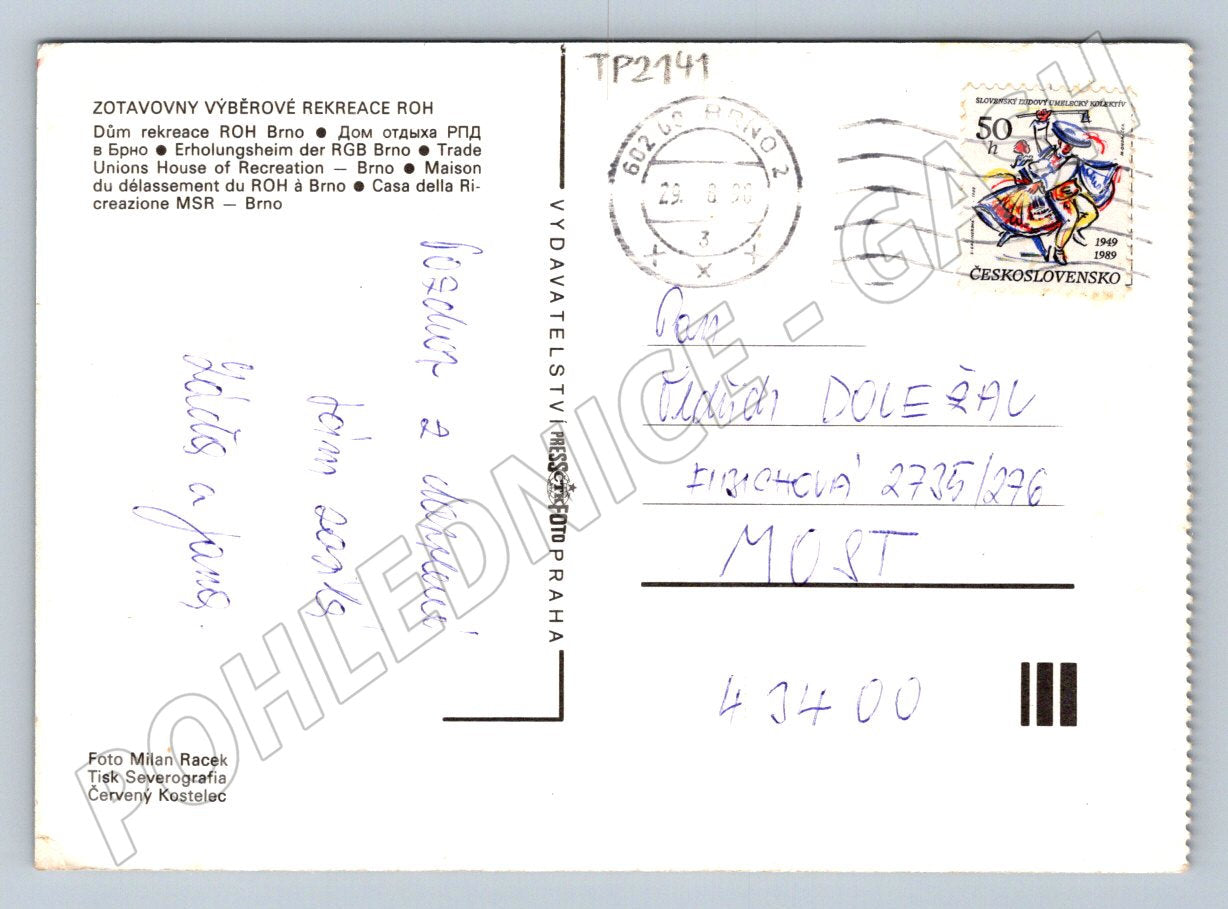 TP2141
ZOTAVOVNY VÝBĚROVÉ REKREACE ROH
Dům rekreace ROH Brno ● Дом отдыха РПД
в Брно ● Erholungsheim der RGB Brno ● Trade
Unions House of Recreation — Brno ● Maison
du délassement du ROH à Brno ● Casa della Ri-
creazione MSR — Brno
Pozdrav z
a Jana
Foto Milan Racek
Tisk Severografia
Červený Kostelec
VYDAVATELSTVÍ PRESSFOTO PRAHA
602 00 BRNO 2
29. 8. 90
3
SLOVENSKÝ ĽUDOVÝ UMELECKÝ KOLEKTÍV
50
h
1949
1989
ČESKOSLOVENSKO
Pan
DOLEŽAL
FIBICHOVA 2735/276
MOST
434 00
POHLEDNICE - GASH